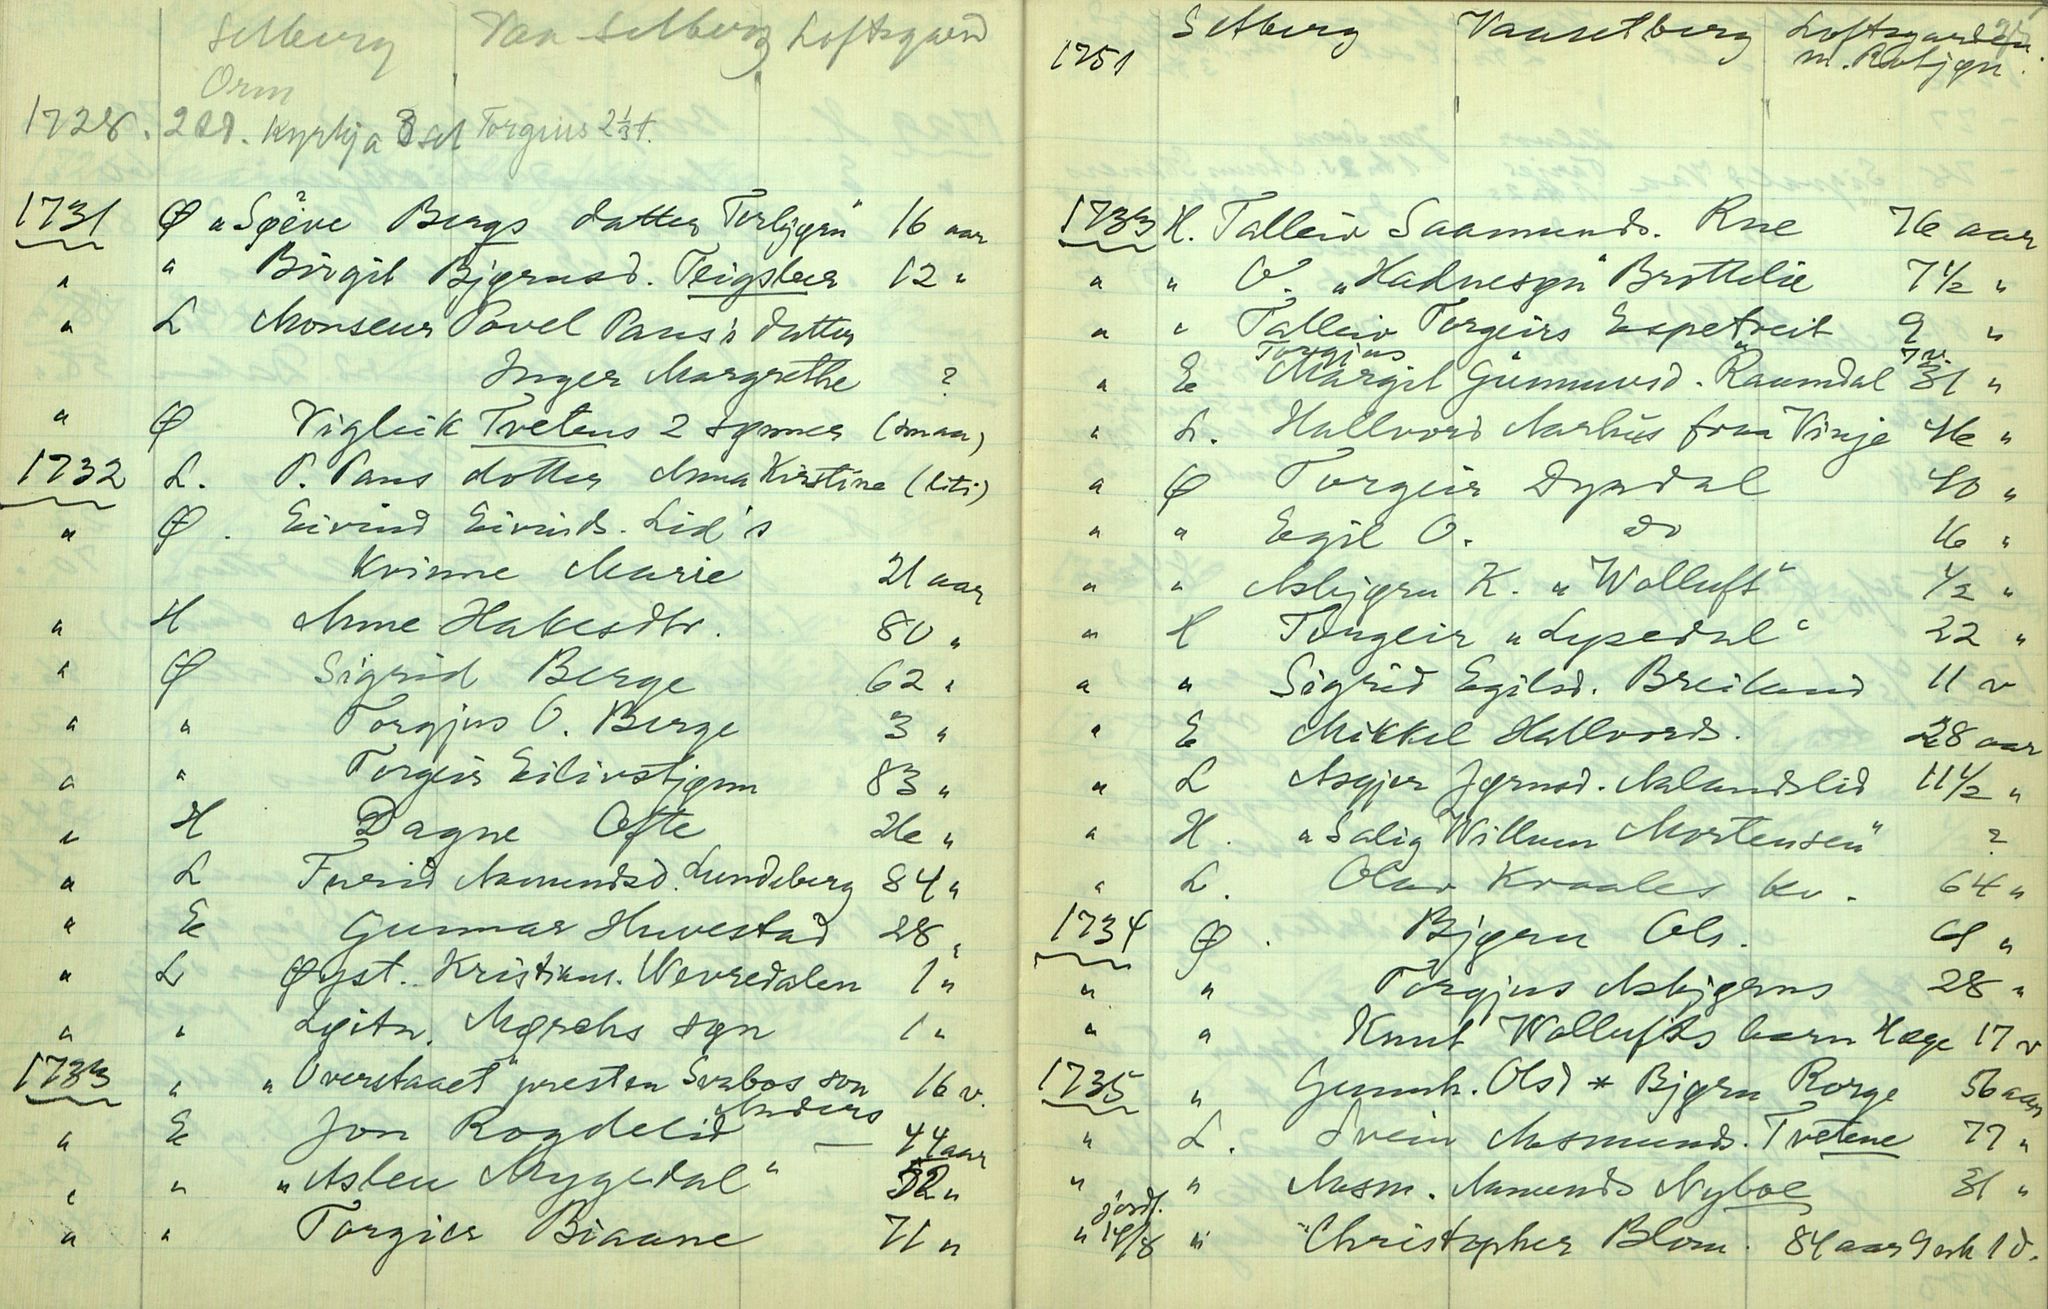 Selberg Vaa Selberg Loftsgard
Orm
1728. Kyrkja Torgius 2 1/3 t.
1731 Ø „Søève Bergs datter Torbjørn" 16 aar
" " Birgit Bjørnsd. Teigsbur 12 "
" L Monseur Povel Paus's datter
Inger Margrethe ?
" Ø Vigleik Tvetens 2 synner (smaa)
1732 L. P. Paus dotter Anna Kirstine (liti)
" Ø. Eivind Eivinds. Lid's
Kvinne Marie 21 aar
" H Anne Hakesdtr. 80 "
" Ø Sigrid Berge 62 "
" " Torgjus O. Berge 3 "
" " Torgeir Eilivstjønn 83 "
" H Dagne Ofte 26 "
" L Turid Aamundsd. Lundeberg 84 "
" E Gunnar Huvestad 28 "
" L Øyst. Kristians. Wevredalen 1 "
" " Løitn. Mørchs søn 1 "
1733 " „Overstaaet" presten Svabos son 16 v.
Anders
" E Jon Rogdelid — 44 aar
" " „Asleu Mygedal" 52 "
" " Torgier Biaane 71 "
1751 Selberg Vaaselberg Loftsgarden
m. Rabjøn.
1733 H.Талleiv Saamunds. Rue 76 aar
" " O. „Hadnesyn" Brottelie 7 1/2 "
" " Talleiv Torgeirs Espetveit 9 "
Torgjus 7 v.
" E Margit Gunnuvsd. Raumdal 31 "
" L. Hallvord Aarhus fraa Vinje 46 "
" Ø Torgeir Dyrdal 40 "
" " Egil O. do 16 "
" " Asbjørn K. „Wolluft" 1/2 "
" H Torgeir „Lysedal" 22 "
" " Sigrid Egilsd. Breiland 11 v
" E Mikkel Hallvords. 28 aar
" L Asgjer Jørnsd. Aalandslid 11 1/2 "
" H. „Salig Willum Mortensen" ?
" L. Olav Kraales kv. 64 "
1734 Ø. Bjørn Ols. "
" " Torgjus Asbjørns 28 "
" " Knut Wollufts barn Hæge 17 v
1735 " Gunnh. Olsd * Bjørn Rorge 56 aar
" L. Svein Aasmunds. Tvetene 77 "
" " Aasm. Aamunds Nyboe 31 "
jordf.
" 14/8 " Christopher Blom. 84 aar 9 mk 1 d.